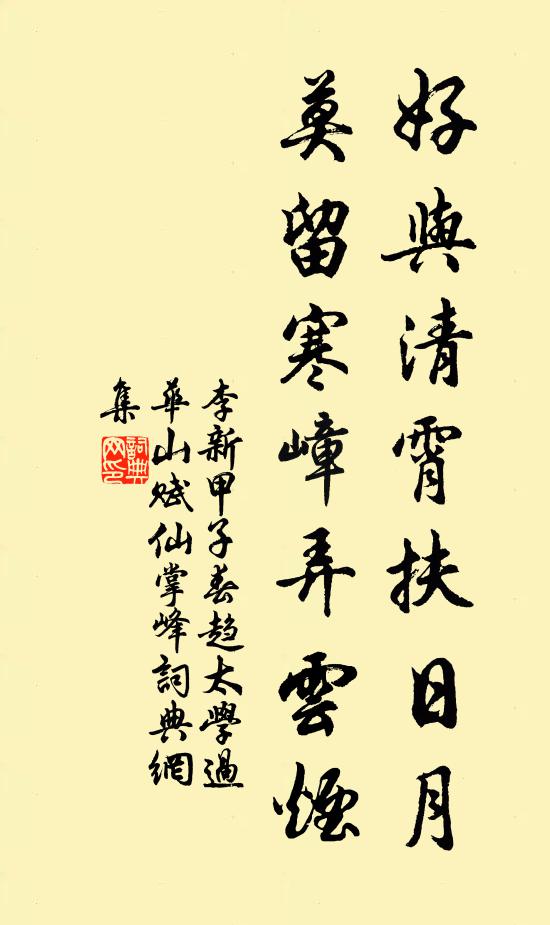 好與清霄扶日月
莫留寒嶂弄雲煙
李新甲子春趨太學過
華山賦仙掌峰詞典網
集
詞典
网印